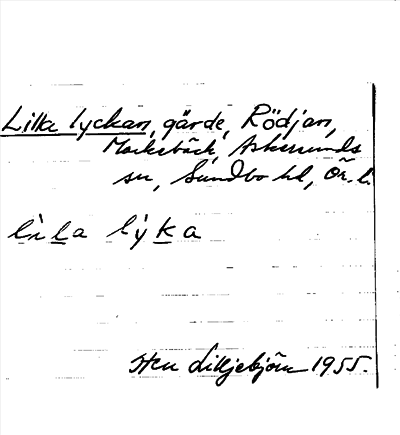 Lilla lyckan, gärde, Rödjan,
Markebäck, Askersunds
sn, Sundbo hd, Ör. l.
lìla lỳka
Sten Lilljebjörn 1955.